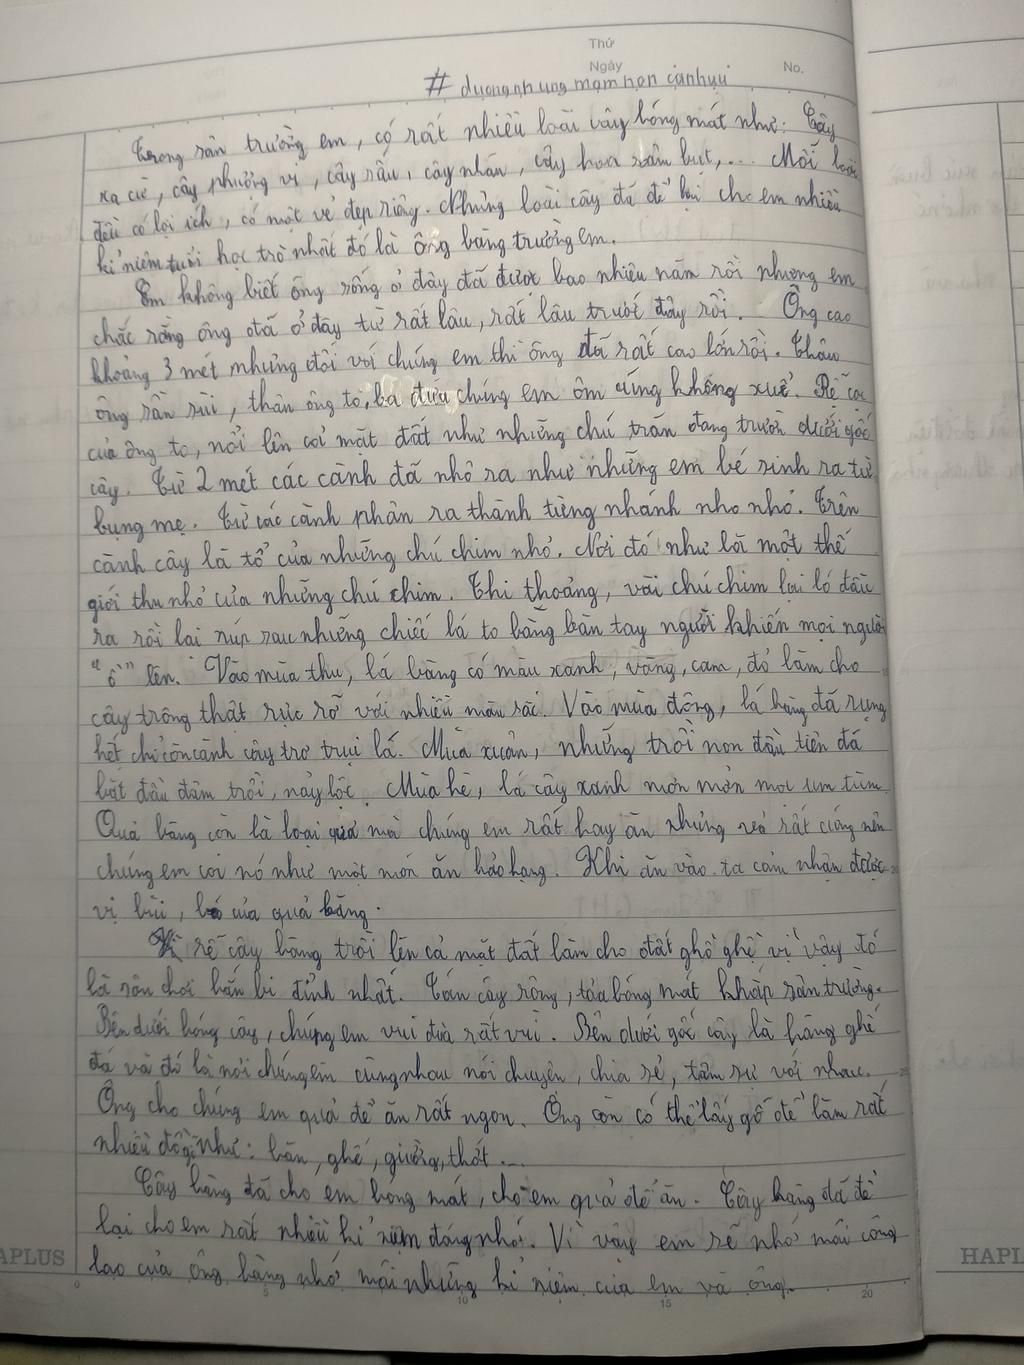 Thứ
Ngày
No.
# duongnhung mam non canhuu
Trong sân trường em, có rất nhiều loài cây bóng mát như: Cây
xà cừ, cây phượng vĩ, cây sấu, cây nhãn, cây hoa râm bụt,... Mỗi loài
đều có lợi ích, có một vẻ đẹp riêng. Nhưng loài cây đã để lại cho em nhiều
kỉ niệm tuổi học trò nhất đó là ông bàng trường em.
Em không biết ông sống ở đây đã được bao nhiêu năm rồi nhưng em
chắc rằng ông đã ở đây từ rất lâu, rất lâu trước đây rồi. Ông cao
khoảng 3 mét nhưng đối với chúng em thì ông đã rất cao lớn rồi. Thân
ông sần sùi, thân ông to, ba đứa chúng em ôm cũng không xuể. Rễ cây
của ông to, nổi lên cả mặt đất như những chú trăn đang trườn dưới gốc
cây. Từ 2 mét các cành đã nhô ra như những em bé sinh ra từ
bụng mẹ. Từ các cành phân ra thành từng nhánh nho nhỏ. Trên
cành cây là tổ của những chú chim nhỏ. Nơi đó như là một thế
giới thu nhỏ của những chú chim. Thi thoảng, vài chú chim lại ló đầu
ra rồi lại núp sau những chiếc lá to bằng bàn tay người khiến mọi người
"ồ" lên. Vào mùa thu, lá bàng có màu xanh, vàng, cam, đỏ làm cho
cây trông thật rực rỡ với nhiều màu sắc. Vào mùa đông, lá bàng đã rụng
hết chỉ còn cành cây trơ trụi lá. Mùa xuân, những trồi non đầu tiên đã
bắt đầu đâm trồi, nảy lộc. Mùa hè, lá cây xanh mơn mởn mọc um tùm.
Quả bàng còn là loại quả mà chúng em rất hay ăn nhưng nó rất cứng nên
chúng em coi nó như một món ăn hảo hạng. Khi ăn vào, ta cảm nhận được
vị bùi, của quả bàng.
Vì rễ cây bàng trồi lên cả mặt đất làm cho đất ghồ ghề vì vậy đó
là sân chơi bắn bi đỉnh nhất. Tán cây rộng, tỏa bóng mát khắp sân trường.
Bên dưới bóng cây, chúng em vui đùa rất vui. Bên dưới gốc cây là hàng ghế
đá và đó là nơi chúng em cùng nhau nói chuyện, chia sẻ, tâm sự với nhau.
Ông cho chúng em quả để ăn rất ngon. Ông còn có thể lấy gỗ để làm rất
nhiều đồ gỗ như: bàn, ghế, giường, thớt...
Cây bàng đã cho em bóng mát, cho em quả để ăn. Cây bàng đã để
lại cho em rất nhiều kỉ niệm đáng nhớ. Vì vậy em sẽ nhớ mãi công
lao của ông bàng nhớ mãi những kỉ niệm của em và ông.
APLUS
HAPL
5
10
15
20